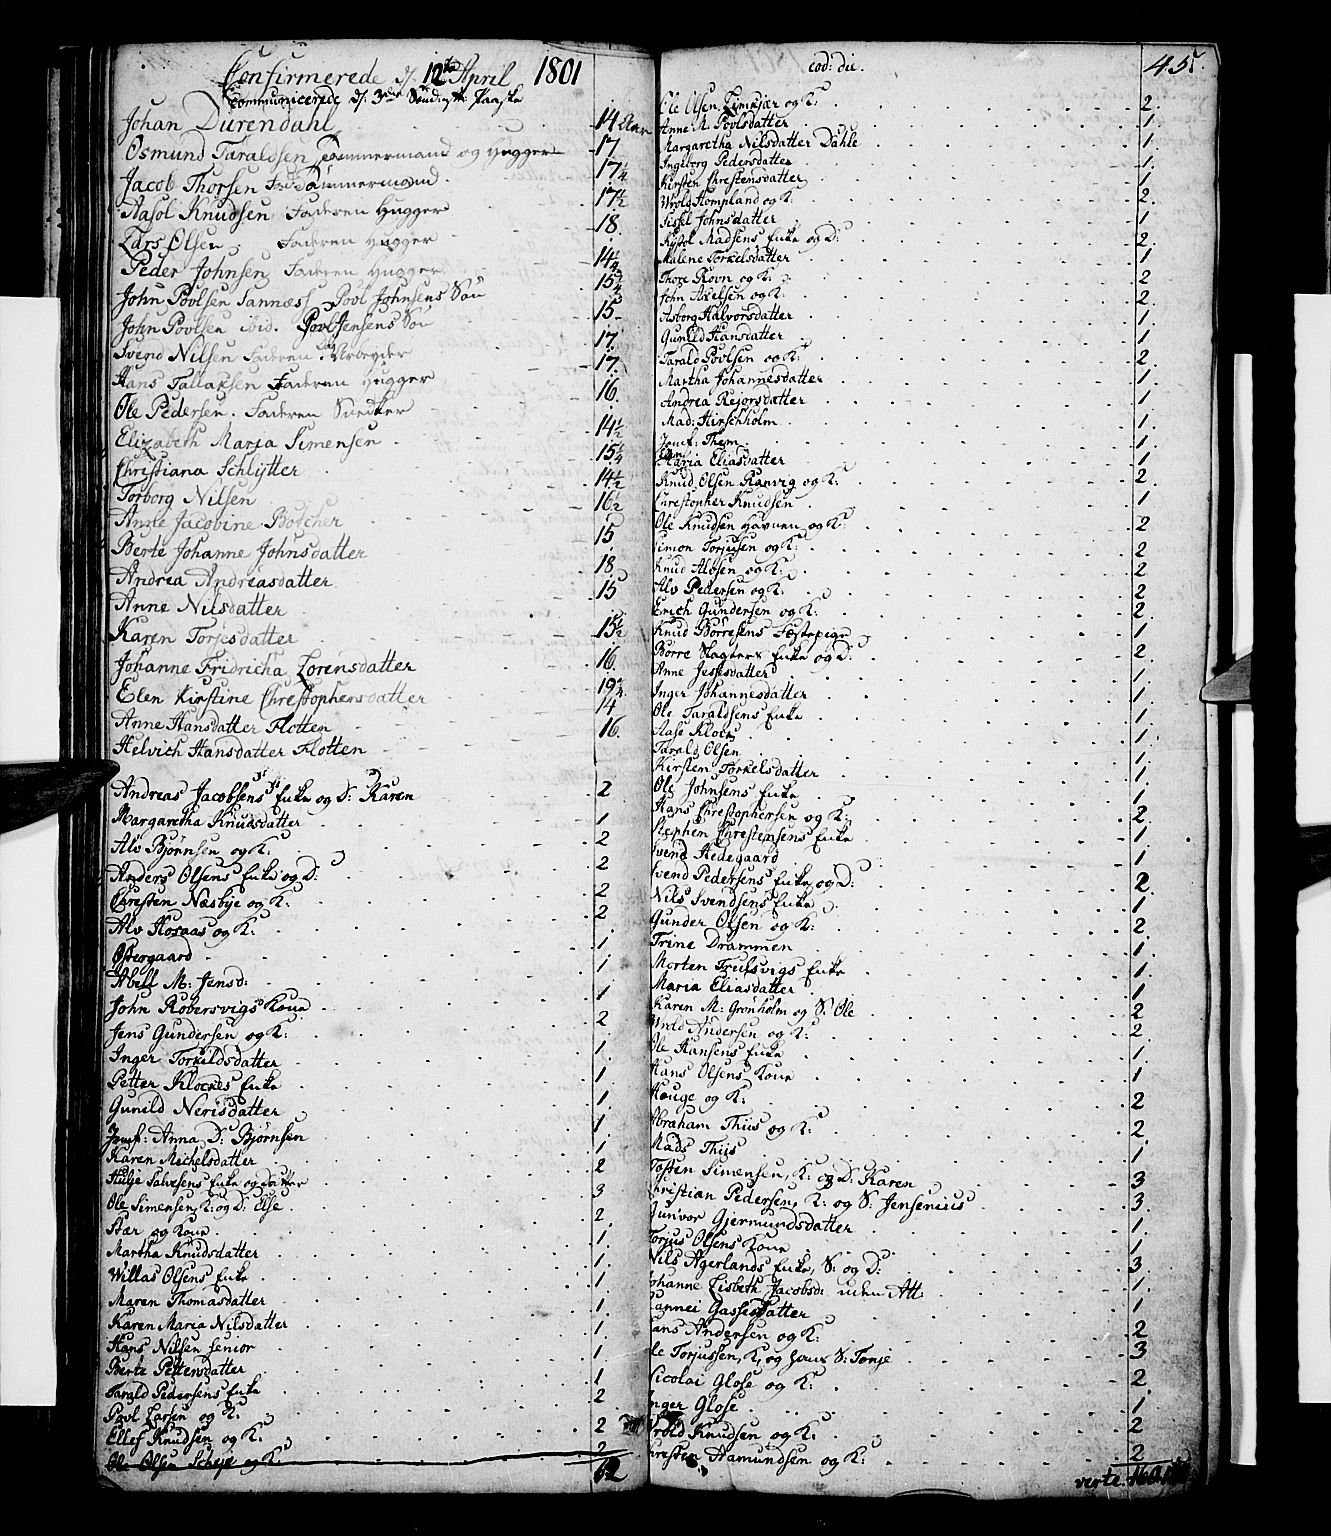 Confirmerede d. 12te April 1801
Communicerede d. 3die Søndag efter Paaske
Johan Dürendahl 14 Aar
Osmund Taraldsen Tømmermand og Hugger 17
Jacob Thorsen Tømmermand 17 1/4
Aasol Knudsen Faderen Hugger 17 1/2
Lars Olsen, Faderen Hugger 18.
Peder Johnsen, Faderen Hugger 14 1/4
John Povlsen Sannæss Povl Johnsens Søn 15 3/4
John Povlsen ibid. Povl Jensens Søn 15
Svend Nilsen Faderen Arbeyder 17
Hans Tallaksen Faderen Hugger 17.
Ole Pedersen. Faderen Snedker 16.
Elizabeth Maria Simensen 14 1/2
Christiana Schlytter 15 1/4
Torborg Nilsen 14 1/2
Anne Jacobine Bøtcher 16 1/2
Berte Johanne Johnsdatter 15
Andrea Andreasdatter 18
Anne Nilsdatter 15
Karen Torjesdatter 15 1/2
Johanne Fridricha Lorensdatter 16.
Elen Kirstine Christophersdatter 19 3/4
Anne Hansdatter Flotten 14
Helvich Hansdatter Flotten 16.
Andreas Jacobsens Enke og D: Karen 2
Margaretha Knudsdatter 1
Alv Bjørnsen og K: 2
Anders Olsens Enke og D: 2
Christen Næsbye og K: 2
Alv Hosaas og K: 2
Østergaard 1
Abell M: Jensd: 1
John Robersvigs Kone 1
Jens Gundersen og K: 2
Inger Torkildsdatter 1.
Petter Klockes Enke 1
Gunild Nerisdatter 1
Jomf: Anna D: Bjørnsen 1
Karen Michelsdatter 1
Hulje Salvesens Enke og Datter 2
Ole Simensen, K: og D: Else 3
Stær og Kone 2.
Martha Knudsdatter 1.
Willas Olsens Enke 1.
Maren Thomasdatter 1
Karen Maria Nilsdatter 1.
Hans Nilsen senior 1.
Berte Pettersdatter 1
Tarald Pedersens Enke 1
Povl Larsen og K: 2
Ellef Knudsen og K: 2
Ole Olsen Scheje og K: 2
62
cod: die. 45.
Ole Olsen Limkjær og K: 2.
Anne M. Povlsdatter 1.
Margaretha Nilsdatter Dahle 1
Ingeborg Pedersdatter 1.
Kirsten Chrestensdatter 1
Wrold Hompland og K: 2.
Sissel Johnsdatter 1
Kjstol Madsens Enke og D: 2.
Malene Torkelsdatter 1
Thore Ravn og K: 2
John Axelsen og K: 2
Asborg Halvorsdatter 1.
Gunild Hansdatter 1
Tarald Povlsen og K: 2
Martha Johannesdatter 1.
Andrea Rejorsdatter 1
Mad: Hirschholm 1.
Jomf: Them 1.
Maria Eliasdatter 1
Knud Olsen Ranvig og K: 2.
Christopher Knudsen 1
Ole Knudsen Havnen og K: 2
Simon Torjusen og K: 2
Knud Alvsen og K: 2
Alv Pedersen og K: 2
Erich Gundersen og K: 2.
Knud Børresens Fæstepige 1
Børre Slagters Enke og D: 2.
Anne Jessesdatter 1
Inger Johannesdatter 1
Ole Taraldsens Enke 1
Aase Klock 1.
Tarald Olsen 1
Kirsten Torkelsdatter 1
Ole Johnsens Enke 1
Hans Christophersen og K: 2.
Stephen Chrestensens Enke 1
Svend Hedegaard 1
Svend Pedersens Enke, og D: 2.
Nils Svendsens Enke 1
Gunder Olsen og K: 2.
Trine Drammen 1
Morten Trulsvigs Enke 1
Maria Eliasdatter 1
Karen M: Grønholm og S: Ole 2
Wrold Andersen og K: 2
Ole Hansens Enke 1
Hans Olsens Kone 1
Houge og K: 2
Abraham Thiis og K: 2
Mads Thiis 1
Tosten Simensen, K: og D: Karen 3
Christian Pedersen, K: og S: Jensenius 3.
Gunvor Gjermundsdatter 1
Torjus Olsens Kone 1
Nils Agerlands Enke, S: og D: 3
Johanne Lisbeth Jacobsd: uden Att: 1
Gassesdatter 1
Hans Andersen og K: 2
Ole Torjussen, K: og S: Tonje 3
Nicolai Glose og K: 2
Inger Glose 1
Wrold Knudsen og K: 2
Chresten Aamundsen og K: 2
verte.